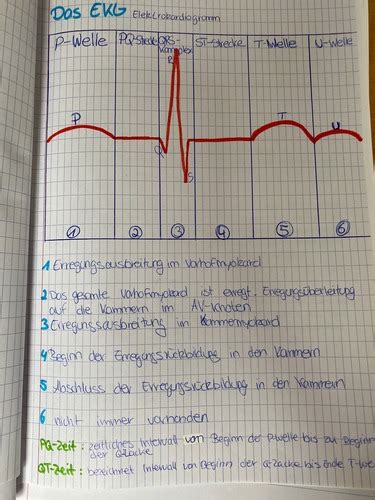 Das EKG Elektrokardiogramm
P-Welle PQ-Strecke QRS-Komplex ST-Strecke T-Welle U-Welle
R
P T U
Q
S
1 2 3 4 5 6
1 Erregungsausbreitung im Vorhofmyokard
2 Das gesamte Vorhofmyokard ist erregt. Erregungsüberleitung
auf die Kammern im AV-Knoten
3 Erregungsausbreitung im Kammermyokard
4 Beginn der Erregungsrückbildung in den Kammern
5 Abschluss der Erregungsrückbildung in den Kammern
6 nicht immer vorhanden
PQ-Zeit: zeitliches Intervall von Beginn der P-Welle bis zu Beginn
der Q-Zacke
QT-Zeit: bezeichnet Intervall von Beginn der Q-Zacke bis Ende T-We